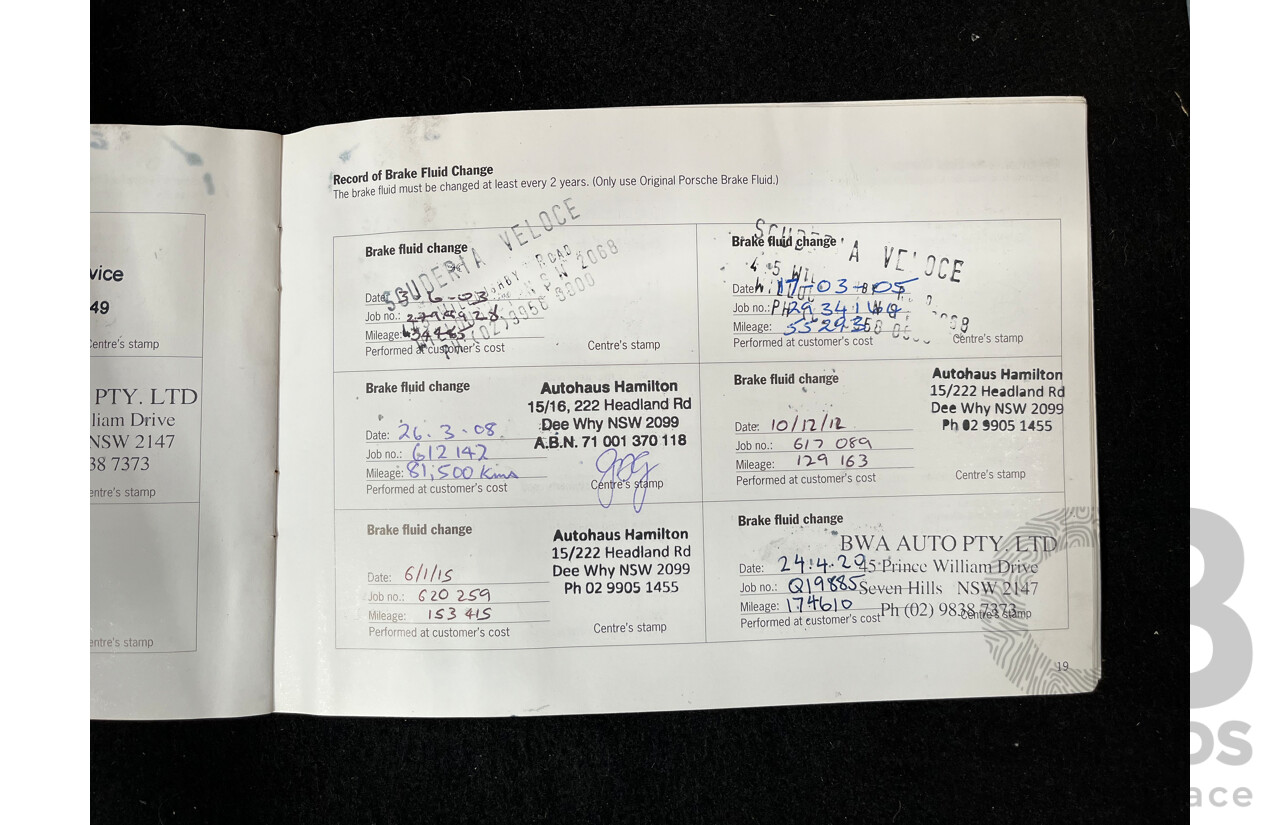 vice
49
Centre's stamp
PTY. LTD
liam Drive
NSW 2147
38 7373
entre's stamp
entre's stamp
Record of Brake Fluid Change
The brake fluid must be changed at least every 2 years. (Only use Original Porsche Brake Fluid.)
Brake fluid change
SCUDERIA VELOCE
ROAD
N S W 2068
Date:
Job no.:
Mileage:
Performed at customer's cost
Centre's stamp
Brake fluid change
VELOCE
Date: 17-03-05
Job no.:
Mileage:
Performed at customer's cost
Centre's stamp
Brake fluid change
Autohaus Hamilton
15/16, 222 Headland Rd
Dee Why NSW 2099
A.B.N. 71 001 370 118
Date: 26.3.08.
Job no.: 612 142
Mileage: 81,500 Kms
Performed at customer's cost
Centre's stamp
Brake fluid change
Autohaus Hamilton
15/222 Headland Rd
Dee Why NSW 2099
Ph 02 9905 1455
Date: 10/12/12
Job no.: 617 089
Mileage: 129 163
Performed at customer's cost
Centre's stamp
Brake fluid change
Autohaus Hamilton
15/222 Headland Rd
Dee Why NSW 2099
Ph 02 9905 1455
Date: 6/1/15
Job no.: 620 259
Mileage: 153 415
Performed at customer's cost
Centre's stamp
Brake fluid change
BWA AUTO PTY. LTD
45 Prince William Drive
Seven Hills NSW 2147
Ph (02) 9838 7373
Date: 24.4.20
Job no.: Q19885
Mileage: 174610
Performed at customer's cost
Centre's stamp
19
os
ace